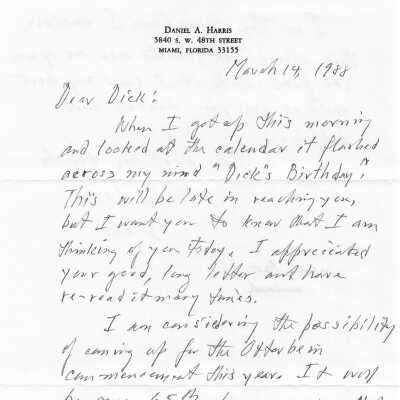 DANIEL A. HARRIS
5840 S. W. 48TH STREET
MIAMI, FLORIDA 33155
March 14, 1988
Dear Dick:
When I got up this morning
and looked at the calendar it flashed
across my mind "Dick's Birthday."
This will be late in reaching you,
but I want you to know that I am
thinking of you today. I appreciated
your good, long letter and have
re-read it many times.
I am considering the possibility
of coming up for the Otterbein
commencement this year. It will
be my 65th